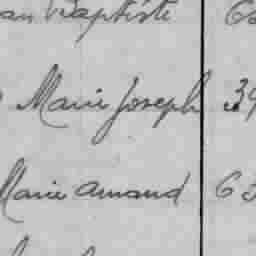 Baptiste
Marie Joseph 39
Marie Amand 63